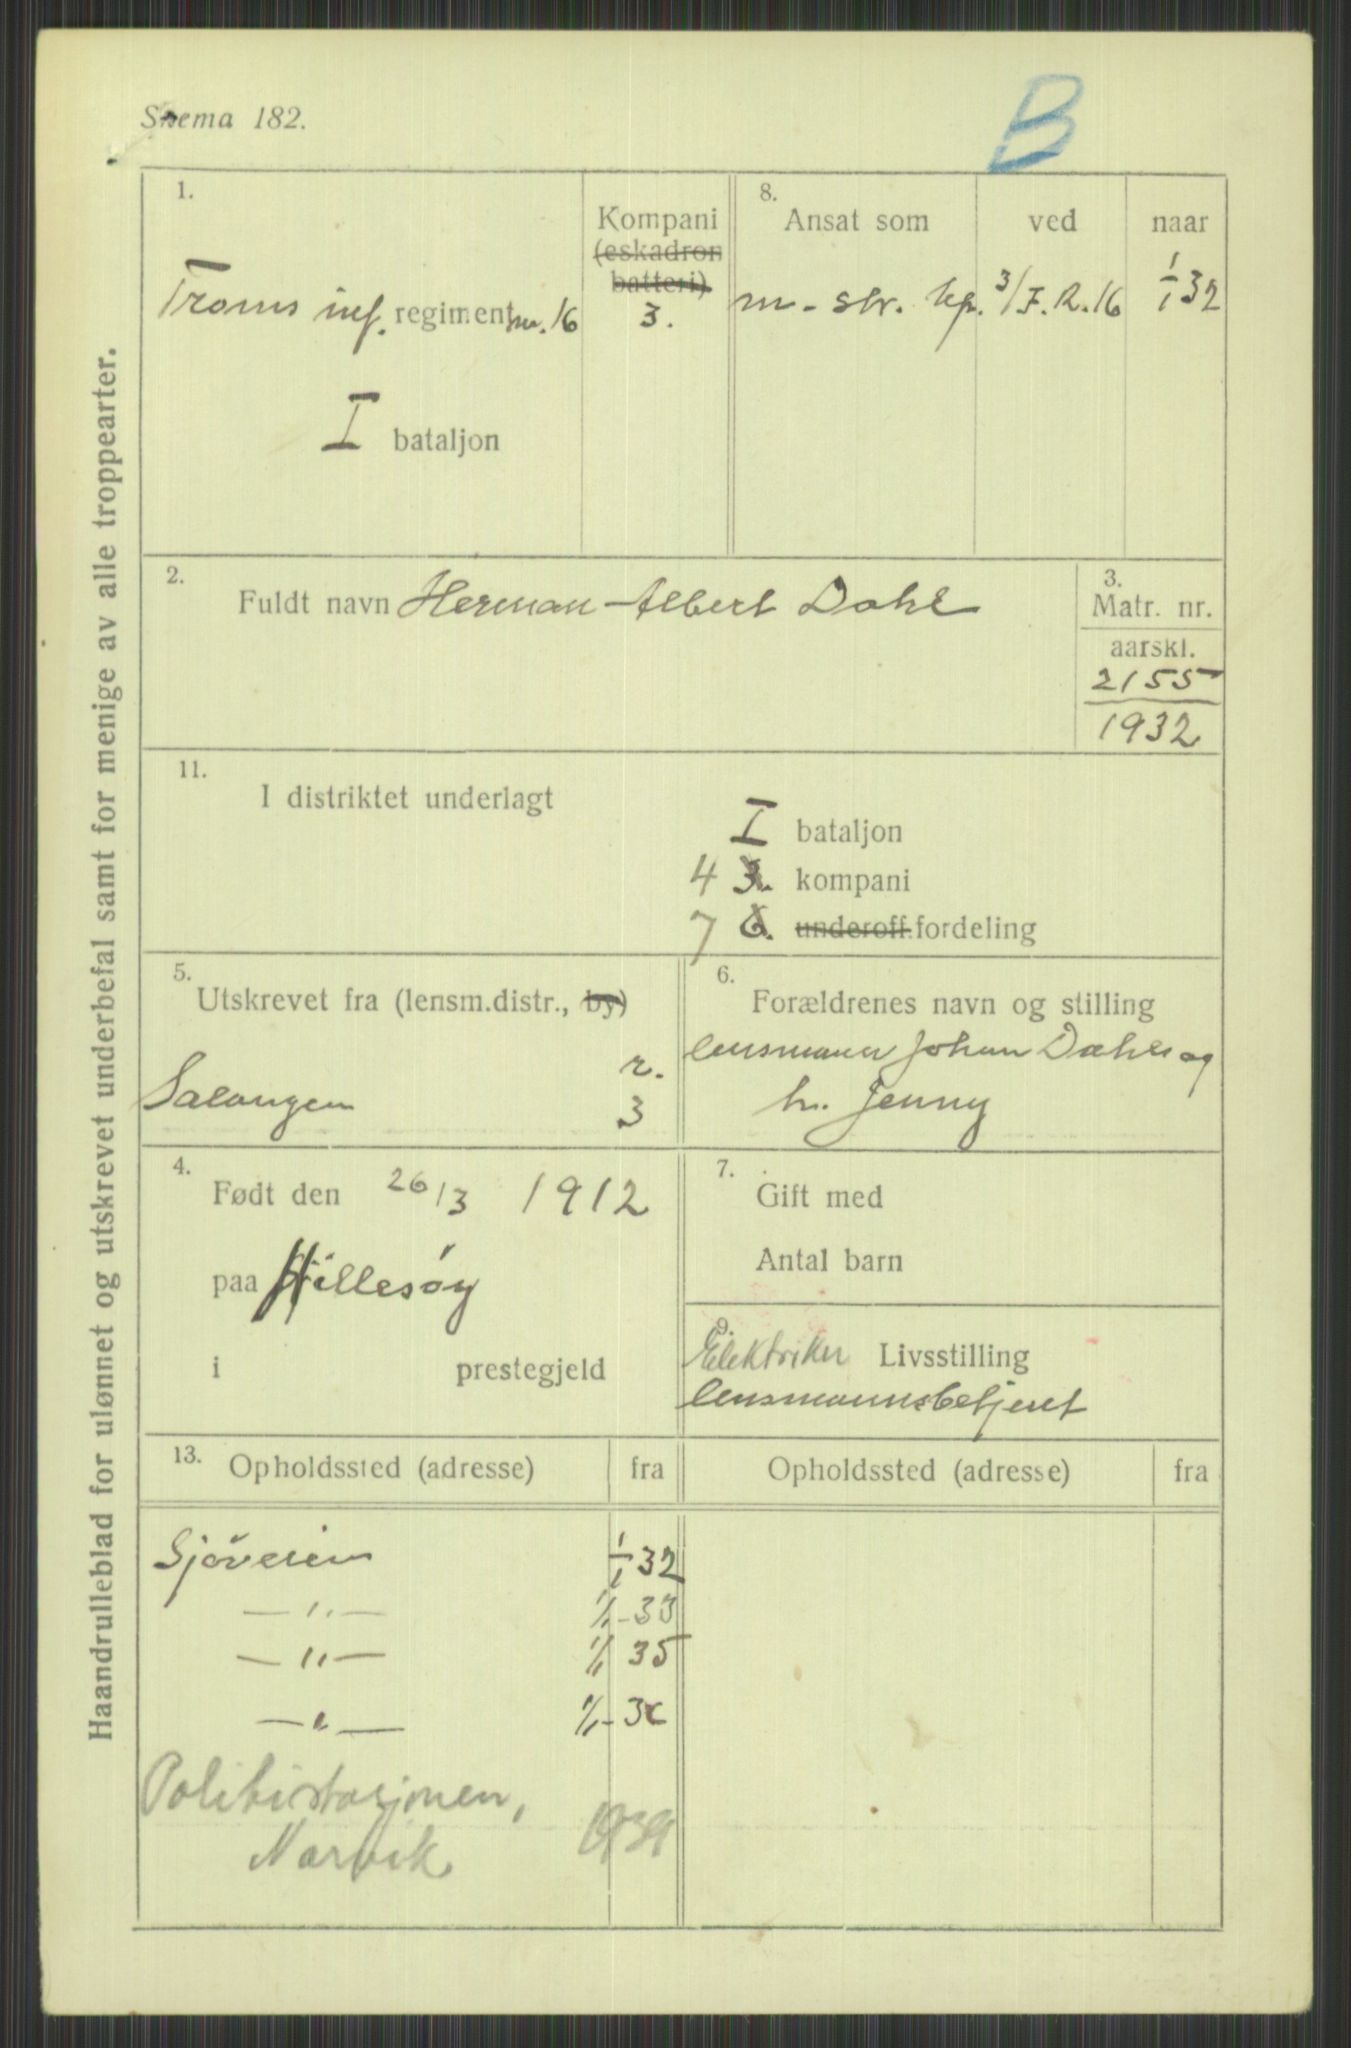 Skema 182.
B
Haandrulleblad for ulønnet og utskrevet underbefal samt for menige av alle troppearter.
1.
Troms inf. regiment nr. 16
I bataljon
Kompani
(eskadron
batteri)
3.
8.
Ansat som
ved
naar
m. str. kp.
3/I.R.16
1/1 32
2.
Fuldt navn Herman Albert Dahl
3.
Matr. nr.
aarskl.
2155
1932
11.
I distriktet underlagt
I bataljon
4 3. kompani
7 6. underoff.fordeling
5.
Utskrevet fra (lensm.distr., by)
r.
Salangen 3
6.
Forældrenes navn og stilling
lensmann Johan Dahl og
h. Jenny
4.
Født den 26/3 1912
paa Hillesøy
i prestegjeld
7.
Gift med
Antal barn
9.
Elektriker Livsstilling
lensmannsbetjent
13.
Opholdssted (adresse) fra
Opholdssted (adresse) fra
Sjøveien 1/1 32
— " — 1/1 - 33
— " — 1/1 35
— " — 1/1 - 36
Politistasjonen,
Narvik 1939